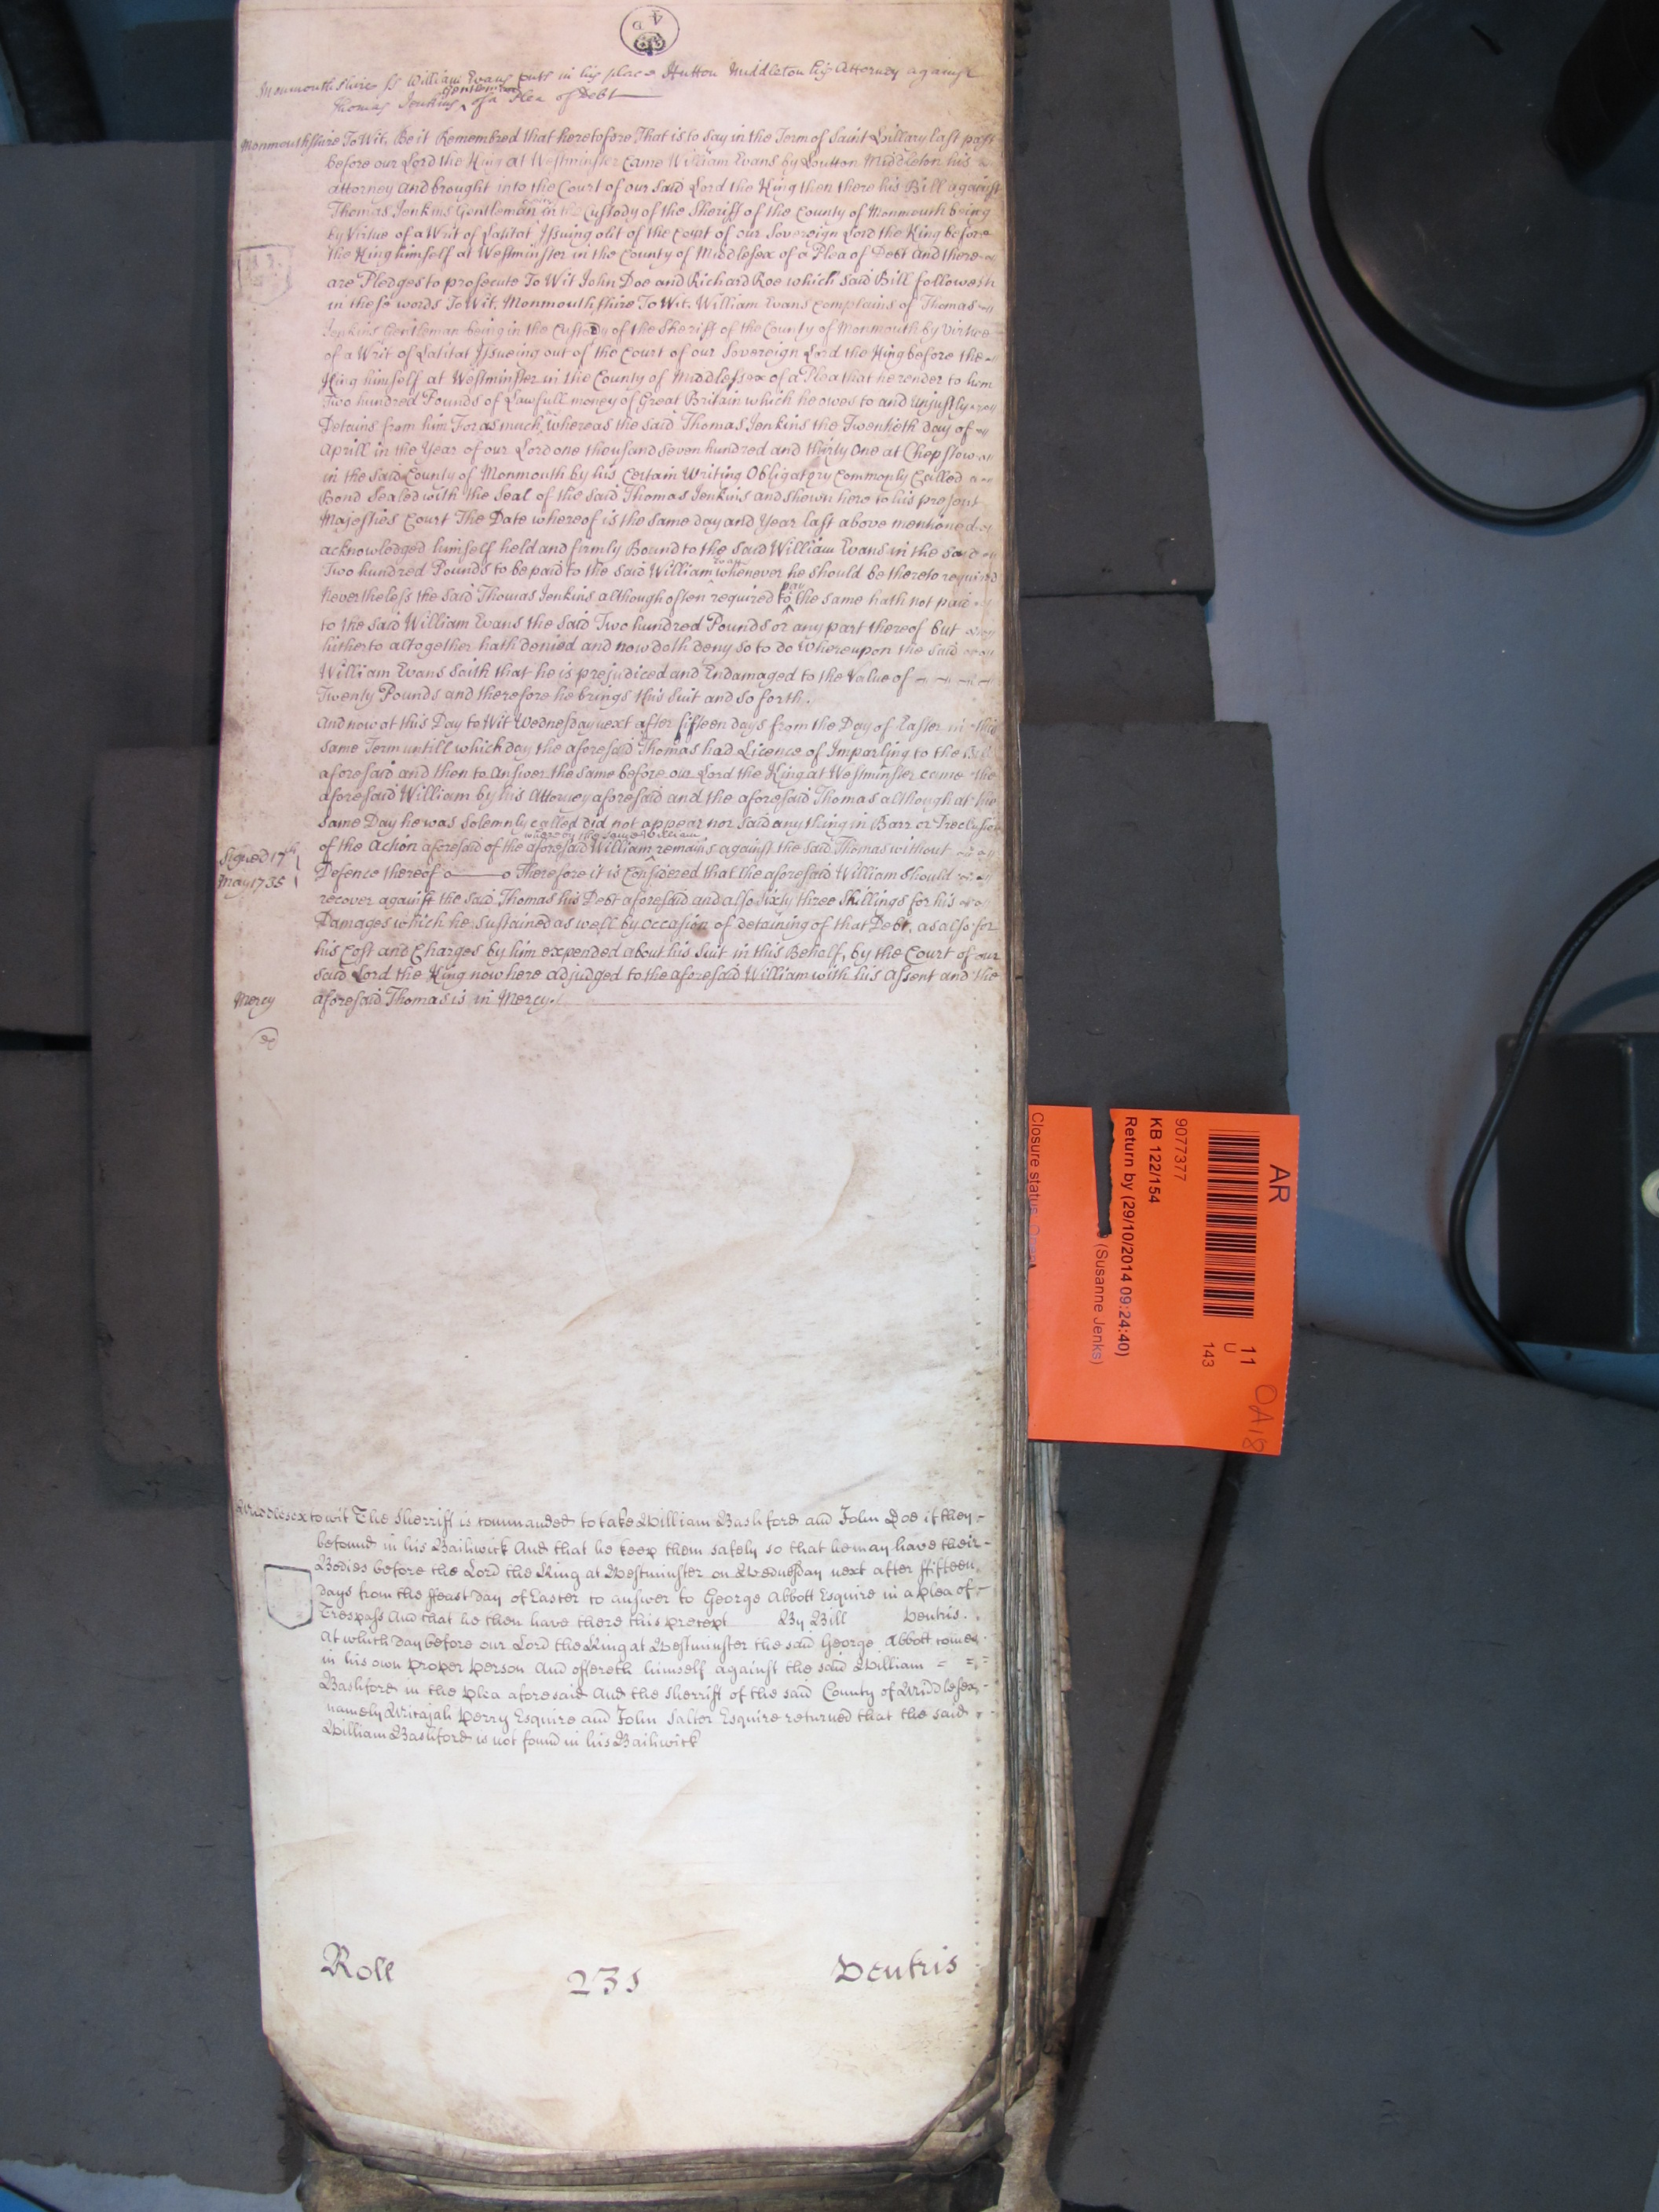 4 D
Monmouthshire ss William Evans puts in his place Hutton Middleton his Attorney against
Thomas Jenkins Gentleman of a Plea of Debt
Monmouthshire To Wit. Be it Remembred that heretofore That is to say in the Term of Saint Hillary last past
before our Lord the King at Westminster Came William Evans by Hutton Middleton his
attorney and brought into the Court of our said Lord the King then there his Bill against
Thomas Jenkins Gentleman in the Custody of the Sheriff of the County of Monmouth being
by Virtue of a Writ of Latitat Issuing out of the Court of our Sovereign Lord the King before
the King himself at Westminster in the County of Middlesex of a Plea of Debt and there
are Pledges to prosecute To Wit John Doe and Richard Roe which said Bill followeth
in these words To Wit. Monmouthshire To Wit. William Evans complains of Thomas
Jenkins Gentleman being in the Custody of the Sheriff of the County of Monmouth by virtue
of a Writ of Latitat Issueing out of the Court of our Sovereign Lord the King before the
King himself at Westminster in the County of Middlessex of a Plea that he render to him
Two hundred Pounds of Lawfull money of Great Britain which he owes to and unjustly
Detains from him For as much whereas the said Thomas Jenkins the Twentieth day of
Aprill in the Year of our Lord one thousand seven hundred and thirty One at Chepstow
in the said County of Monmouth by his Certain Writing Obligatory Commonly Called a
Bond Sealed with the Seal of the said Thomas Jenkins and shewn here to his present
Majesties Court The Date whereof is the same day and Year last above mentioned
acknowledged himself held and firmly Bound to the said William Evans in the said
Two hundred Pounds to be paid to the said William Evans whenever he should be thereto required
Nevertheless the said Thomas Jenkins although often required to pay the same hath not paid
to the said William Evans the said Two hundred Pounds or any part thereof but
hitherto altogether hath denied and now doth deny so to do Whereupon the said
William Evans saith that he is prejudiced and Endamaged to the Value of
Twenty Pounds and therefore he brings this Suit and so forth.
And now at this Day to Wit Wednesday next after fifteen days from the Day of Easter in this
same Term untill which day the aforesaid Thomas had Licence of Imparling to the Bill
aforesaid and then to answer the same before our Lord the King at Westminster came the
aforesaid William by his Attorney aforesaid and the aforesaid Thomas although at the
same Day he was Solemnly called did not appear nor said any thing in Barr or Preclusion
of the Action aforesaid of the aforesaid William whereby the same William remains against the said Thomas without
Signed 17th
May 1735
Defence thereof o——o Therefore it is Considered that the aforesaid William should
recover against the said Thomas his Debt aforesaid and also sixty three Shillings for his
Damages which he sustained as well by Occasion of detaining of that Debt, as also for
his Cost and Charges by him expended about his Suit in this Behalf, by the Court of our
said Lord the King now here adjudged to the aforesaid William with his assent and the
Mercy aforesaid Thomas is in Mercy.
Middlesex to wit The Sherriff is commanded to take William Bashford and John Doe if they
be found in his Bailiwick And that he keep them safely so that he may have their
Bodies before the Lord the King at Westminster on Wednesday next after ffifteen
days from the ffeast day of Easter to answer to George Abbott Esquire in a plea of
Trespass And that he then have there this precept By Bill Ventris.
At which day before our Lord the King at Westminster the said George Abbott comes
in his own proper person And offereth himself against the said William
Bashford in the plea aforesaid And the Sherriff of the said County of Middlesex
namely Micajah Perry Esquire and John Salter Esquire returned that the said
William Bashford is not found in his Bailiwick
Roll 235 Ventris
AR
9077377
KB 122/154
Return by (29/10/2014 09:24:40)
(Susanne Jenks)
Closure status
11
U
143
OA18